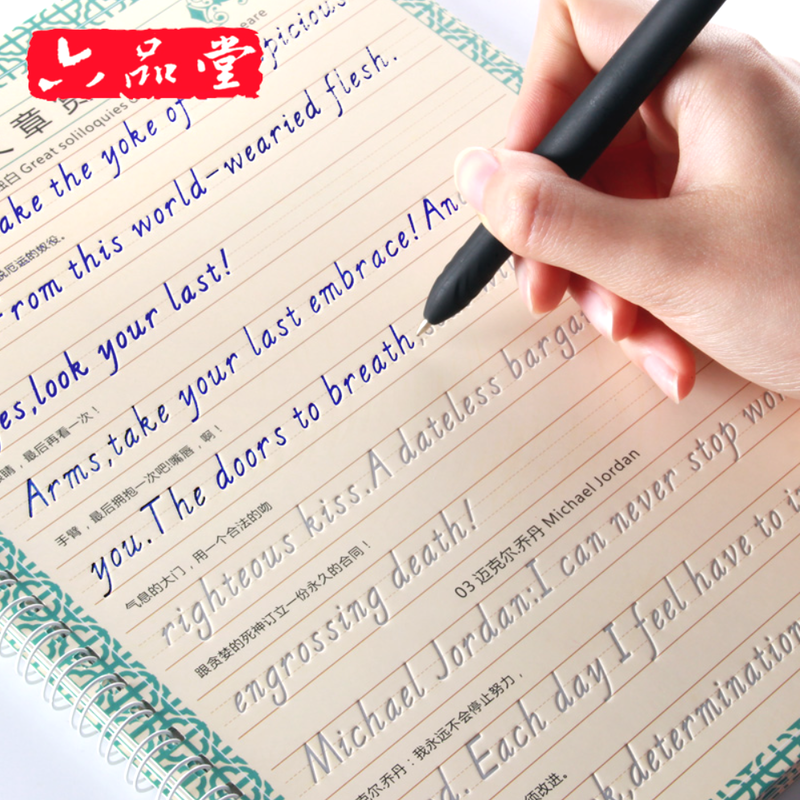 六品堂
章
独白 Great soliloquies
ake the yoke of picious
的奴役。
From this world-wearied flesh.
yes,look your last!
眼睛，最后再看一次！
Arms,take your last embrace! And
手臂，最后拥抱一次吧!嘴唇，啊！
you.The doors to breath,
气息的大门，用一个合法的吻
righteous kiss.A dateless barga
跟贪婪的死神订立一份永久的合同！
engrossing death!
03 迈克尔.乔丹 Michael Jordan
Michael Jordan:I can never stop wor
克尔.乔丹：我永远不会停止努力，
d. Each day I feel have to i
改进。
k,determination